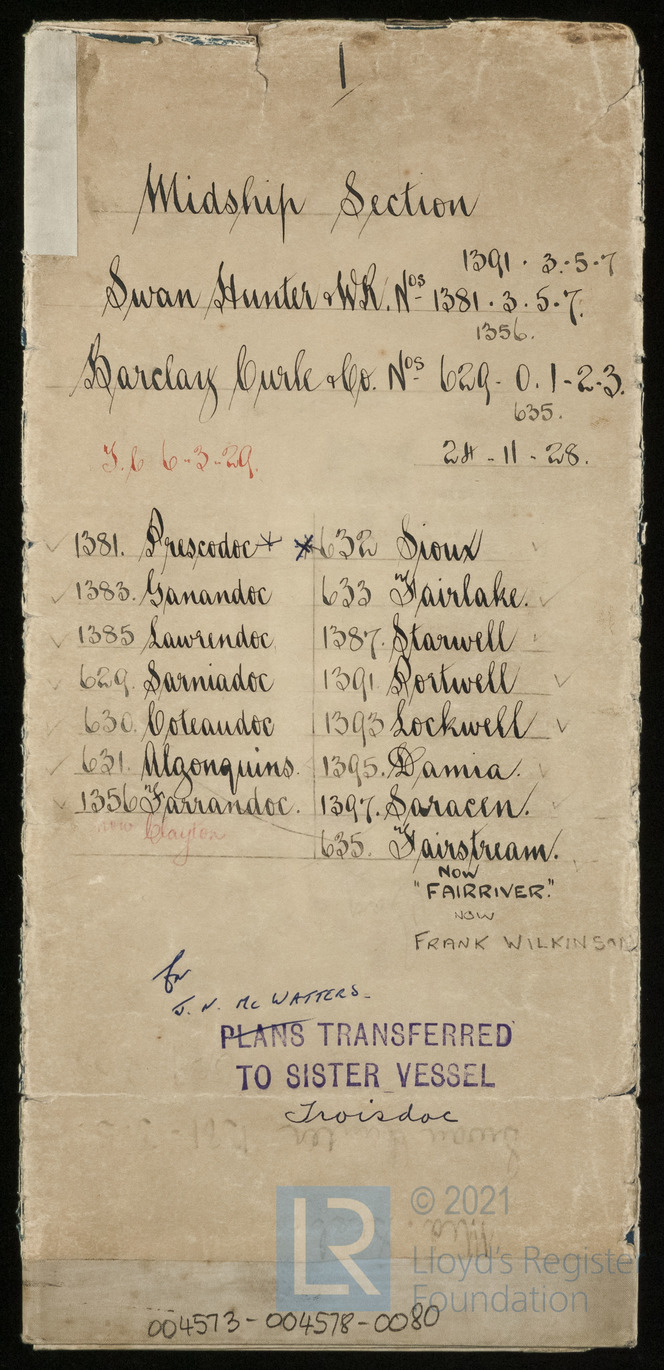 1
Midship Section
1391 · 3 · 5 · 7
Swan Hunter & W.R. Nos 1381 · 3 · 5 · 7.
1356.
Barclay Curle & Co. Nos 629 - 0. 1 - 2 - 3.
635.
J.C 6-3-29.
24 - 11 - 28.
1381. Prescodoc
632 Sioux
1383. Ganandoc
633 Fairlake.
1385 Lawrendoc
1387. Starwell
629. Sarniadoc
1391 Portwell
630. Coteaudoc
1393 Lockwell
631. Algonquins.
1395. Damia.
1356 Farrandoc.
1397. Saracen.
now Clayton
635. Fairstream.
NOW
"FAIRRIVER."
NOW
FRANK WILKINSON
for
J. N. Mc WATTERS
PLANS TRANSFERRED
TO SISTER VESSEL
Troisdoc
LR
© 2021
Lloyd's Register
Foundation
004573 - 004578 - 0080